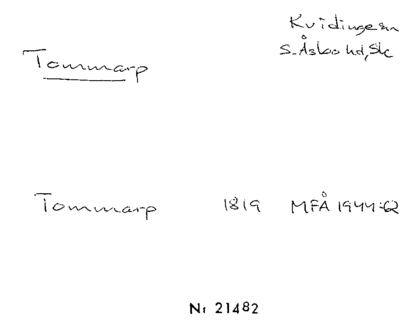 Kvidinge sn
S. Åsbo hd, Sk
Tommarp
Tommarp 1819 MFÅ 1944:62
Nr 21482